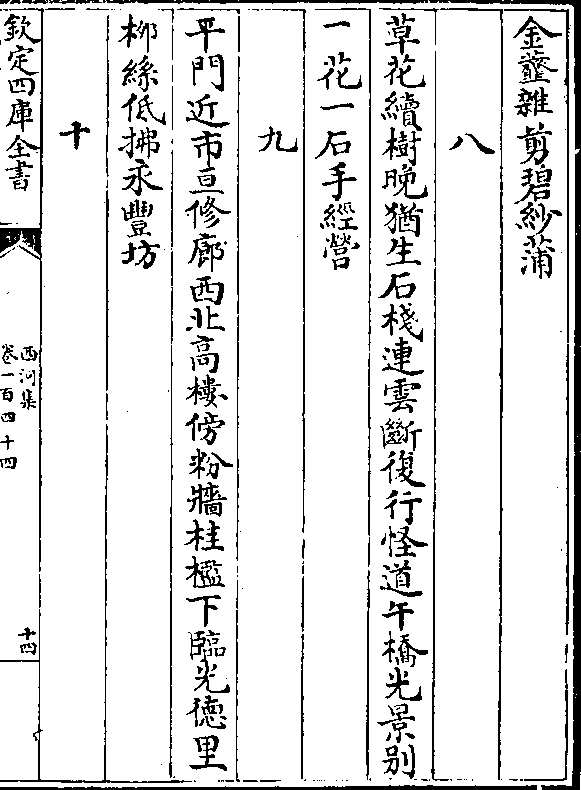 金虀雜剪碧紗蒲
八
草花續樹晩猶生石棧連雲斷復行怪道午橋光景别
一花一石手經營
九
平門近市亘修廊西北高樓傍粉牆桂檻下臨光徳里
栁絲低拂永豐坊
十
欽定四庫全書
西河集
卷一百四十四
十四